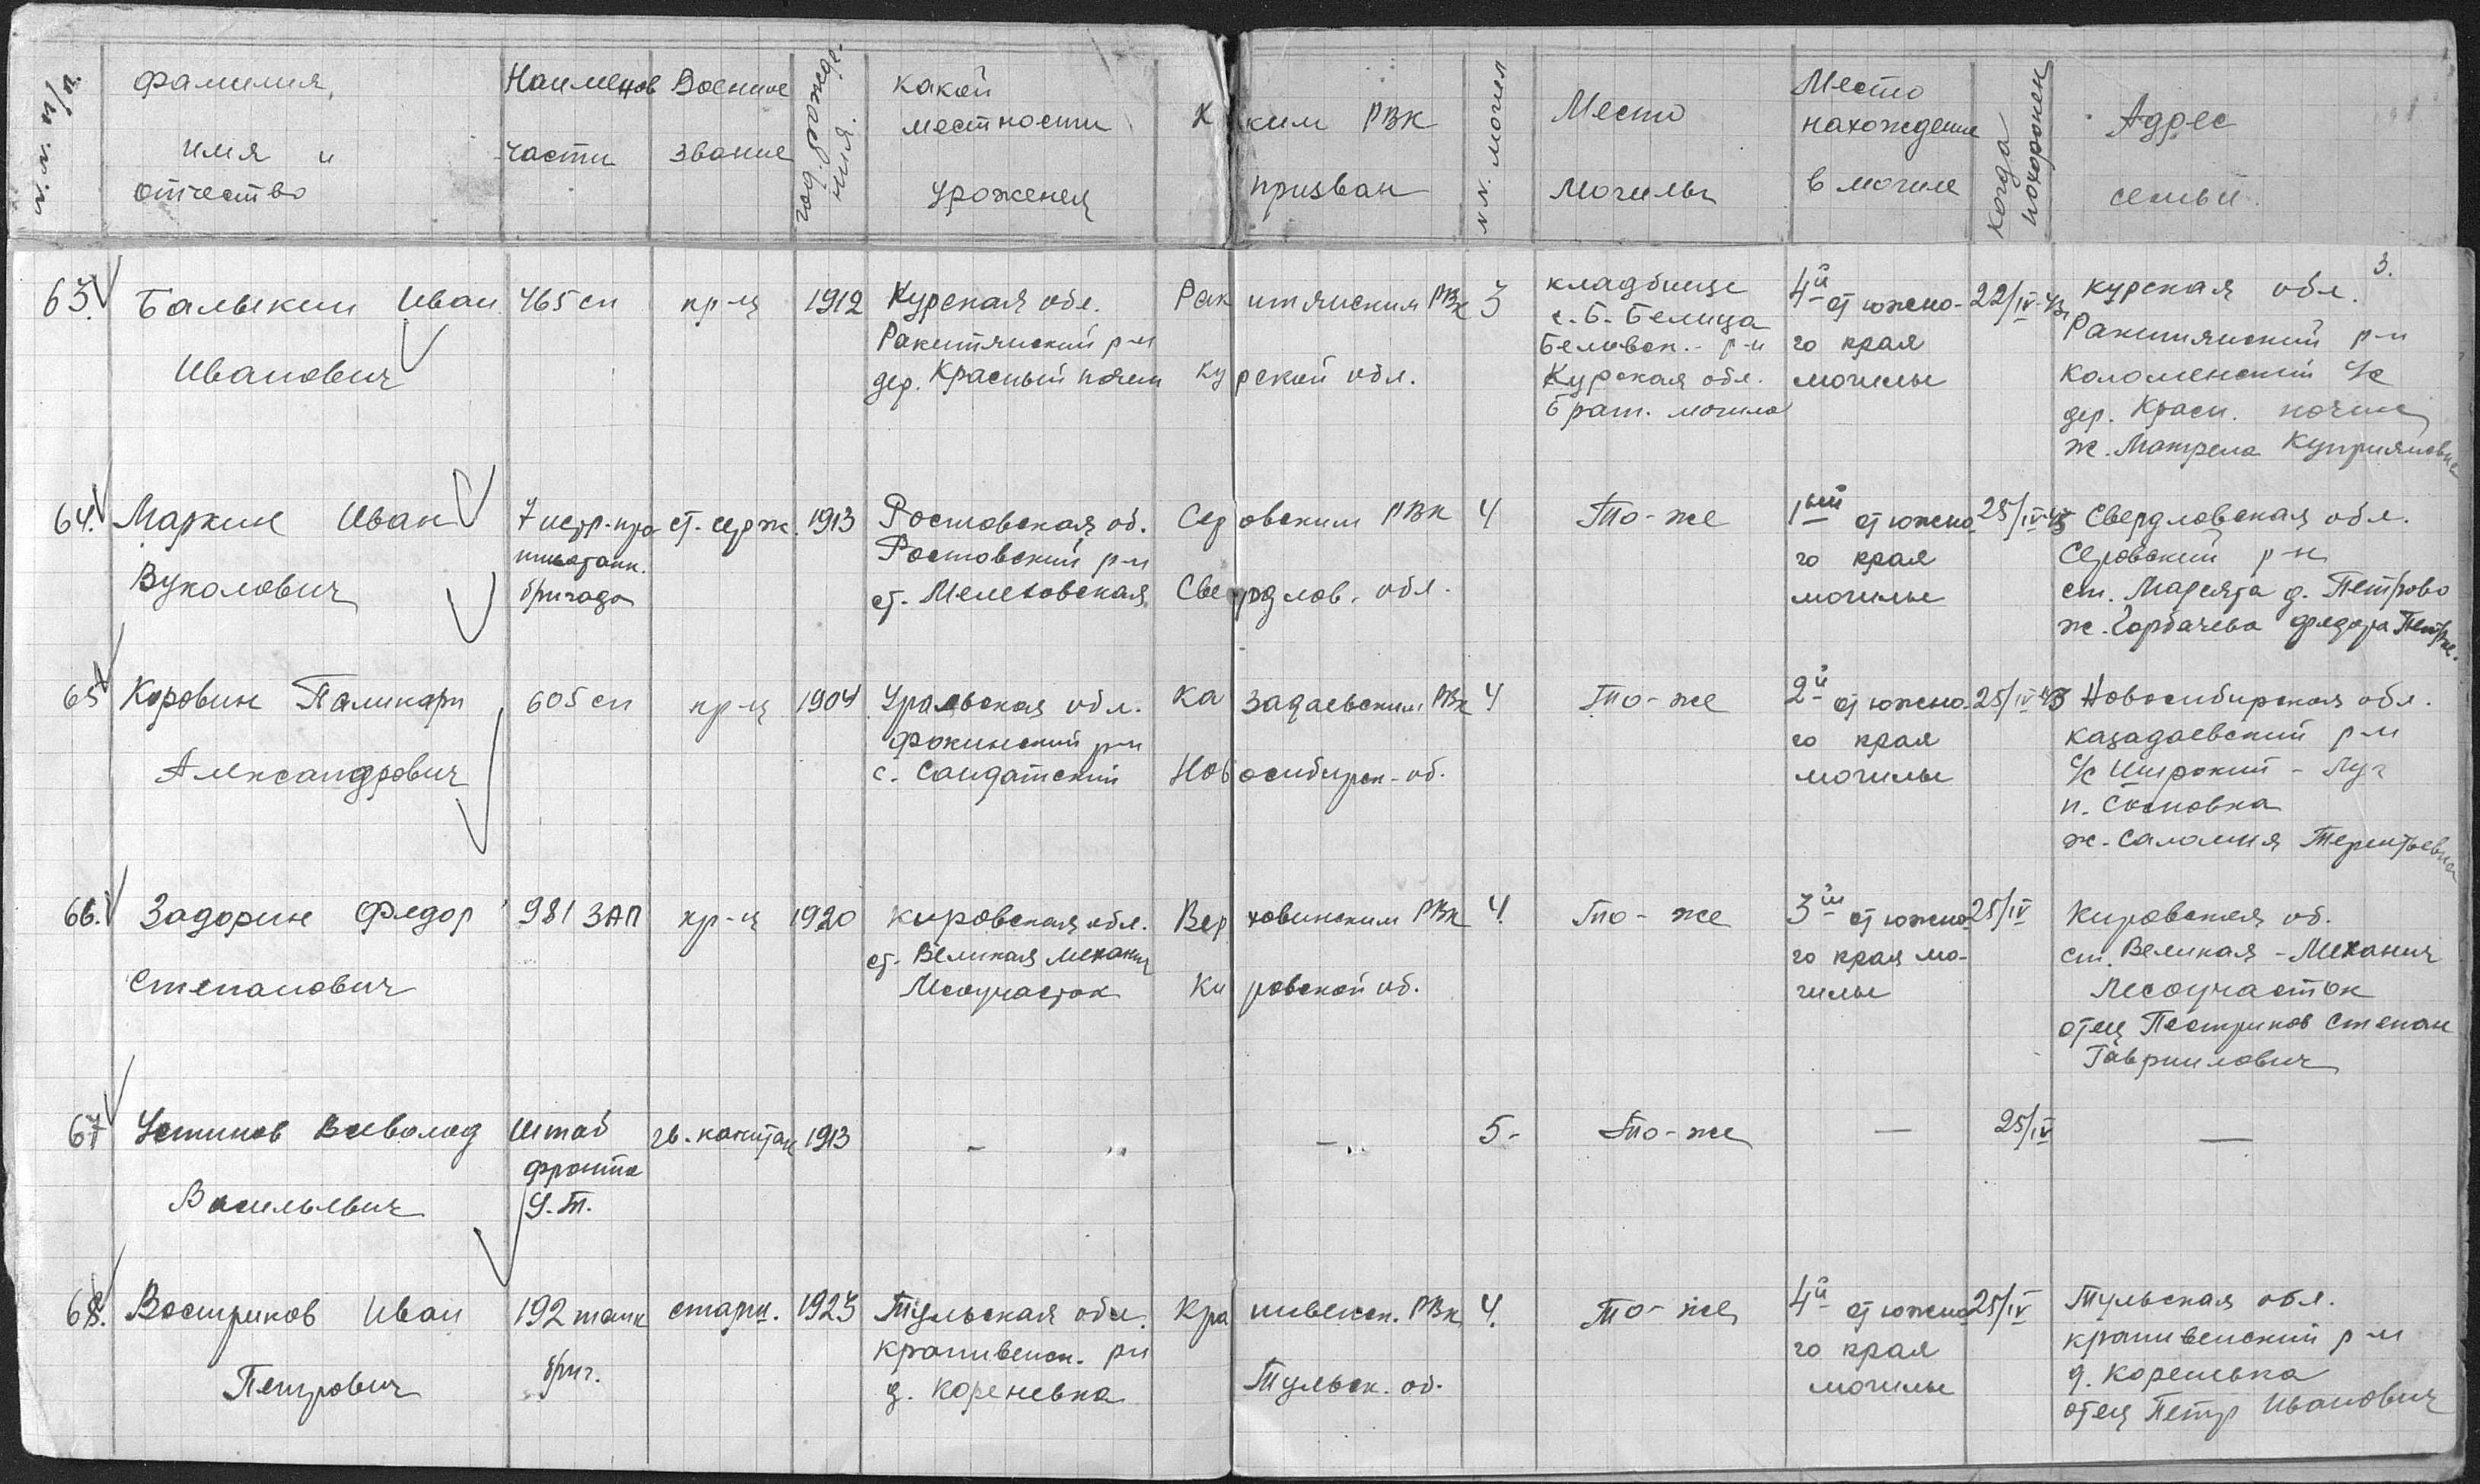 №№ п/п
Фамилия, имя и отчество
Наименов части
Военное звание
год. рождения.
какой местности уроженец
Каким РВК призван
№№ могил
Место могилы
Место нахождение в могиле
когда похоронен
Адрес семьи.
3.
63. Балыкин Иван Иванович
465 сп
кр-ц
1912
Курская обл.
Ракитянский р-н
дер. Красный починк
Ракитянским РВК
Курской обл.
3
кладбище
с. Б. Белица
Беловск. р-н
Курская обл.
Брат. могила
4й от южно-
го края
могилы
22/IV-43
Курская обл.
Ракитянский р-н
Коломенский с/с
дер. Красн. почин
ж. Матрена Куприяновна
64. Маркин Иван
Вуколович
7 истр. про
тивотанк.
бригада
ст. серж.
1913
Ростовская об.
Ростовский р-н
ст. Мелеховская
Серовским РВК
Свердлов. обл.
4
То-же
1ый от южно
го края
могилы
25/IV-43
Свердловская обл.
Серовский р-н
ст. Марсята д. Петрово
ж. Горбачева Федора Петров.
65 Коровин Паликарп
Александрович
605 сп
кр-ц
1904
Уральская обл.
Фокинский р-н
с. Сандатский
Казадаевским РВК
Новосибирск-об.
4
То-же
2й от южно-
го края
могилы
25/IV 43
Новосибирская обл.
Казадаевский р-н
с/с Широкий - Луг
п. Сосновка
ж. Саломия Терентьевна
66. Задорин Федор
Степанович
981 ЗАП
кр-ц
1920
Кировская обл.
ст. Великая Механич
Лесоучасток
Верховинским РВК
Кировской об.
4.
То-же
3й от южно
го края мо-
гилы
25/IV
Кировская об.
ст. Великая - Механич
Лесоучасток
отец Пестриков Степан
Гавриилович
67 Устинов Всеволод
Васильевич
Штаб
фронта
У.Т.
гв. капитан
1913
- "
- "
5-
То-же
—
25/IV
—
68. Востриков Иван
Петрович
192 танк
бриг.
старш.
1923
Тульская обл.
Крапивенск. рн
д. Кореневка
Крапивенск. РВК
Тульск. об.
4.
То-же
4й от южно
го края
могилы
25/IV
Тульская обл.
Крапивенский р-н
д. Кореневка
отец Петр Иванович